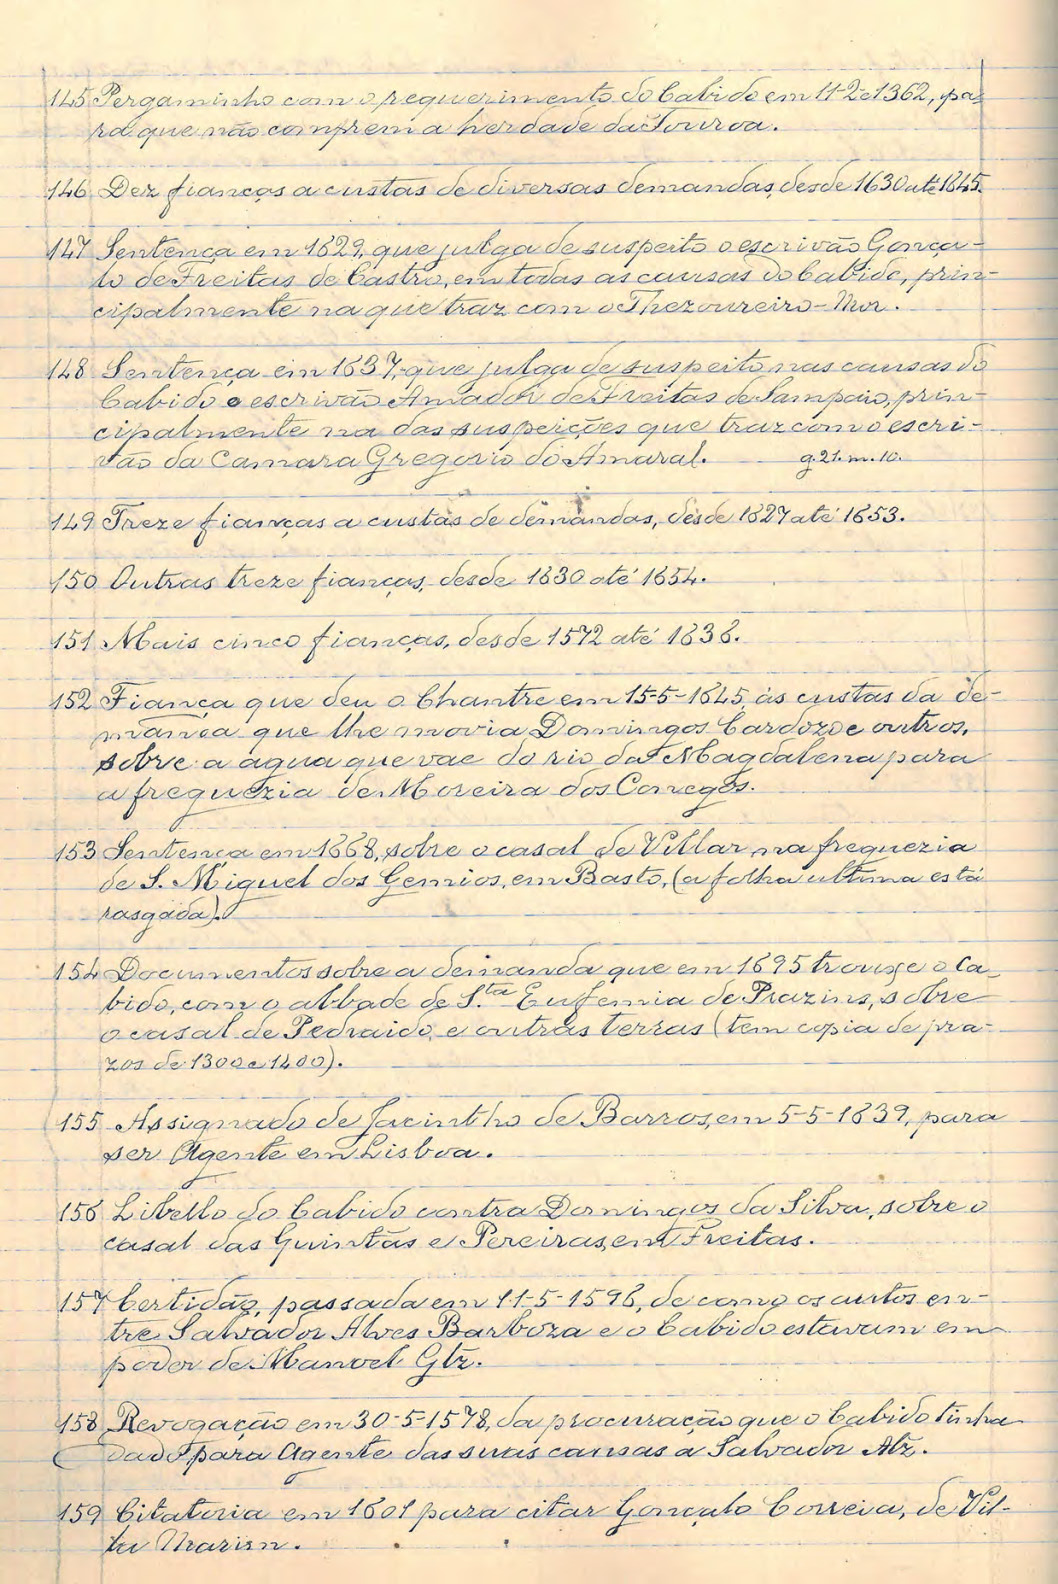 145 Pergaminho com o requerimento do Cabido em 11-2-1362, pa-
ra que não comprem a herdade da Touroa.
146 Dez fianças a custas de diversas demandas, desde 1630 até 1645.
147 Sentença em 1629, que julga de suspeito o escrivão Gonça-
lo de Freitas de Castro, em todas as causas do Cabido, prin-
cipalmente na que traz com o Thezoureiro-Mor.
148 Sentença em 1637, que julga de suspeito nas causas do
Cabido o escrivão Amador de Freitas de Sampaio, prin-
cipalmente na das suspeições que traz com o escri-
vão da Camara Gregorio do Amaral. g. 21. m. 10.
149 Treze fianças a custas de demandas, desde 1627 até 1653.
150 Outras treze fianças, desde 1630 até 1654.
151 Mais cinco fianças, desde 1572 até 1638.
152 Fiança que deu o Chantre em 15-5-1645, ás custas da de-
manda que lhe movia Domingos Cardozo e outros,
sobre a agua que vae do rio da Magdalena para
a freguezia de Moreira dos Conegos.
153 Sentença em 1668, sobre o casal de Villar, na freguezia
de S. Miguel dos Gemios, em Basto, (a folha ultima está
rasgada).
154 Documentos sobre a demanda que em 1695 trouxe o Ca-
bido, com o abbade de S.ta Eufemia de Prazins, sobre
o casal de Pedraido, e outras terras (tem copia de pra-
zos de 1300 e 1400).
155 Assignado de Jacintho de Barros, em 5-5-1639, para
ser Agente em Lisboa.
156 Libello do Cabido contra Domingos da Silva, sobre o
casal das Quintãs e Pereiras, em Freitas.
157 Certidão, passada em 11-5-1596, de como os autos en-
tre Salvador Alves Barboza e o Cabido estavam em
poder de Manoel Glz.
158 Revogação em 30-5-1578, da procuração que o Cabido tinha
dado para Agente das suas causas a Salvador Alz.
159 Citatoria em 1601 para citar Gonçalo Correia, de Vil-
la Marim.